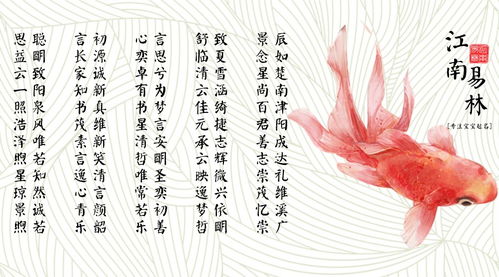 江南
易林
[专注宝宝起名]
辰如楚南津阳成达礼维溪广
景念星尚百君善志崇茂忆崇
致夏雪涵绮捷志辉微兴依明
舒临清云佳元承云映逸梦哲
言思兮为梦言安明圣奕初善
心奕卓有书星清哲唯常若乐
初源诚新真维新笑清言颜韶
言长家知书茂素言逸心青乐
聪明致阳泉风唯若知然诚若
思益云一照浩泽煦星琼景煦